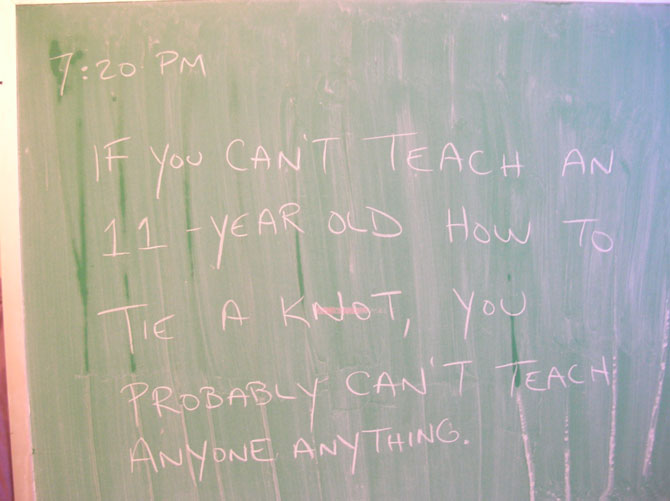 7:20 PM
IF YOU CAN'T TEACH AN
11-YEAR OLD HOW TO
TIE A KNOT, YOU
PROBABLY CAN'T TEACH
ANYONE ANYTHING.